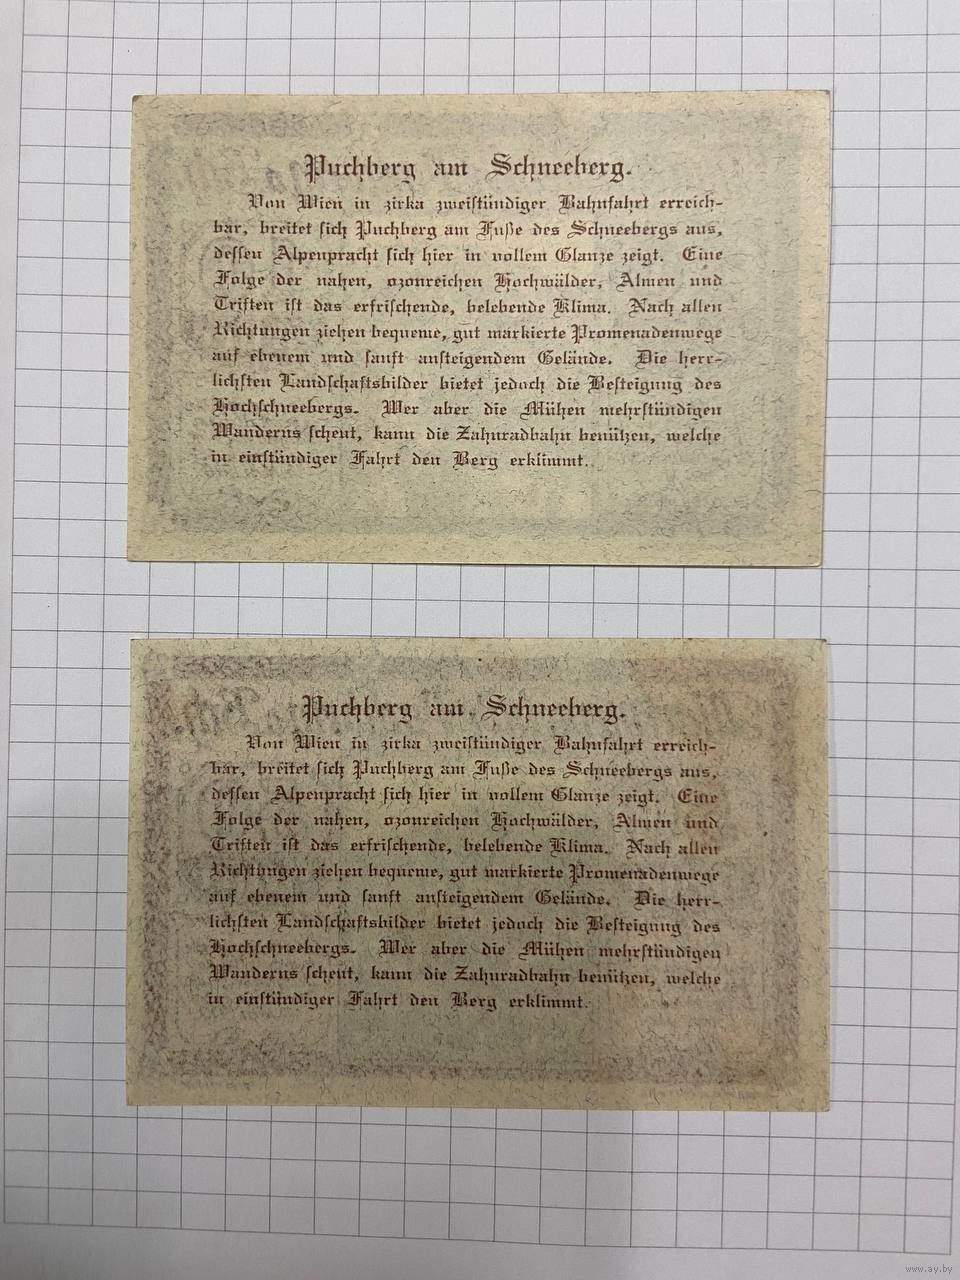 Puchberg am Schneeberg.
Von Wien in zirka zweistündiger Bahnfahrt erreich-
bar, breitet sich Puchberg am Fuße des Schneebergs aus,
dessen Alpenpracht sich hier in vollem Glanze zeigt. Eine
Folge der nahen, ozonreichen Hochwälder, Almen und
Triften ist das erfrischende, belebende Klima. Nach allen
Richtungen ziehen bequeme, gut markierte Promenadenwege
auf ebenem und sanft ansteigendem Gelände. Die herr-
lichsten Landschaftsbilder bietet jedoch die Besteigung des
Hochschneebergs. Wer aber die Mühen mehrstündigen
Wanderns scheut, kann die Zahnradbahn benützen, welche
in einstündiger Fahrt den Berg erklimmt.
Puchberg am Schneeberg.
Von Wien in zirka zweistündiger Bahnfahrt erreich-
bar, breitet sich Puchberg am Fuße des Schneebergs aus,
dessen Alpenpracht sich hier in vollem Glanze zeigt. Eine
Folge der nahen, ozonreichen Hochwälder, Almen und
Triften ist das erfrischende, belebende Klima. Nach allen
Richtungen ziehen bequeme, gut markierte Promenadenwege
auf ebenem und sanft ansteigendem Gelände. Die herr-
lichsten Landschaftsbilder bietet jedoch die Besteigung des
Hochschneebergs. Wer aber die Mühen mehrstündigen
Wanderns scheut, kann die Zahnradbahn benützen, welche
in einstündiger Fahrt den Berg erklimmt.
www.ay.by